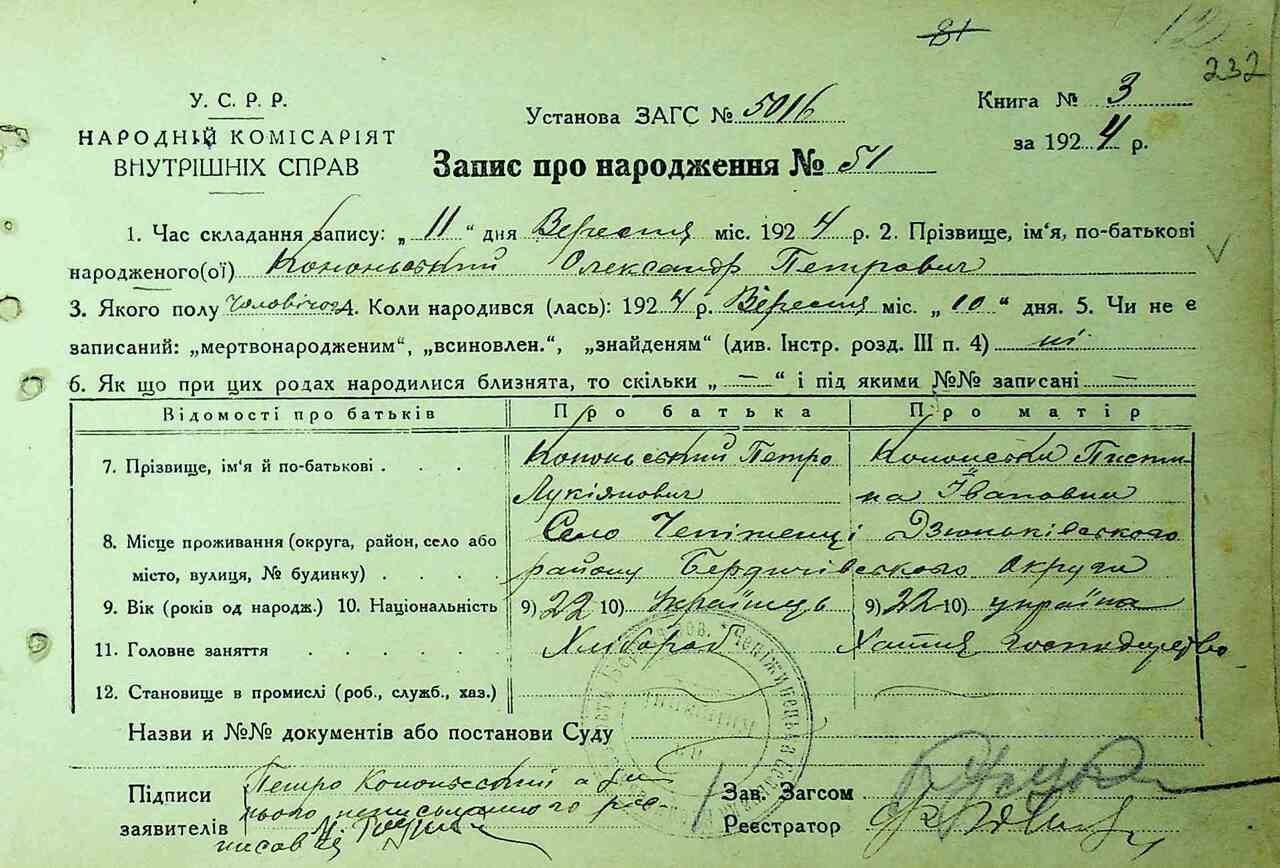 81
232
У. С. Р. Р.
НАРОДНІЙ КОМІСАРІЯТ
ВНУТРІШНІХ СПРАВ
Установа ЗАГС № 5016
Книга № 3
за 1924 р.
Запис про народження № 51
1. Час складання запису: „ 11 “ дня Вересня міс. 1924 р. 2. Прізвище, ім'я, по-батькові
народженого(ої) Кононьський Олександр Петрович
3. Якого полу Чоловічого 4. Коли народився (лась): 1924 р. Вересня міс. „ 10 “ дня. 5. Чи не є
записаний: „мертвонародженим“, „всиновлен.“, „знайденям“ (див. Інстр. розд. III п. 4) ні
6. Як що при цих родах народилися близнята, то скільки „ — “ і під якими №№ записані —
Відомості про батьків Про батька Про матір
7. Прізвище, ім'я й по-батькові . . . Кононьський Петро Лукіянович
Івановна
8. Місце проживання (округа, район, село або
місто, вулиця, № будинку) . . . .
Село Дзюньківського
району Бердичівського Округи
9. Вік (років од народж.) 10. Національність 9) 22 10) Українець 9) 22 10) україна
11. Головне заняття . . . . . Хлібороб Хатня господарство
12. Становище в промислі (роб., служб., хаз.)
Назви и №№ документів або постанови Суду
Підписи
заявителів
Петро Кононьський а за
нього неписьменного рос-
писався
Зав. Загсом
Реєстратор